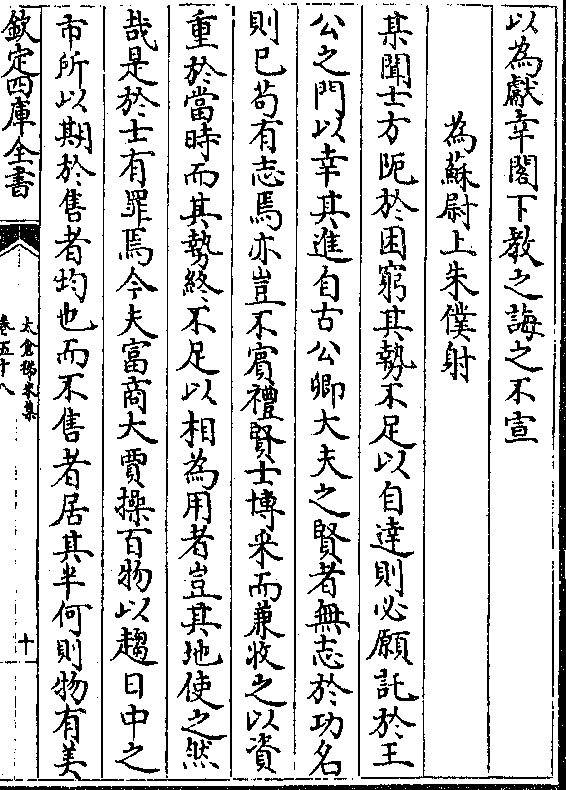 以為獻幸閣下教之誨之不宣
為蘇尉上朱僕射
某聞士方阨於困窮其勢不足以自達則必願託於王
公之門以幸其進自古公卿大夫之賢者無志於功名
則已苟有志焉亦豈不賓禮賢士博采而兼收之以資
重於當時而其勢終不足以相為用者豈其地使之然
哉是於士有罪焉今夫富商大賈操百物以趨日中之
市所以期於售者均也而不售者居其半何則物有美
欽定四庫全書
太倉稊米集
卷五十八
十